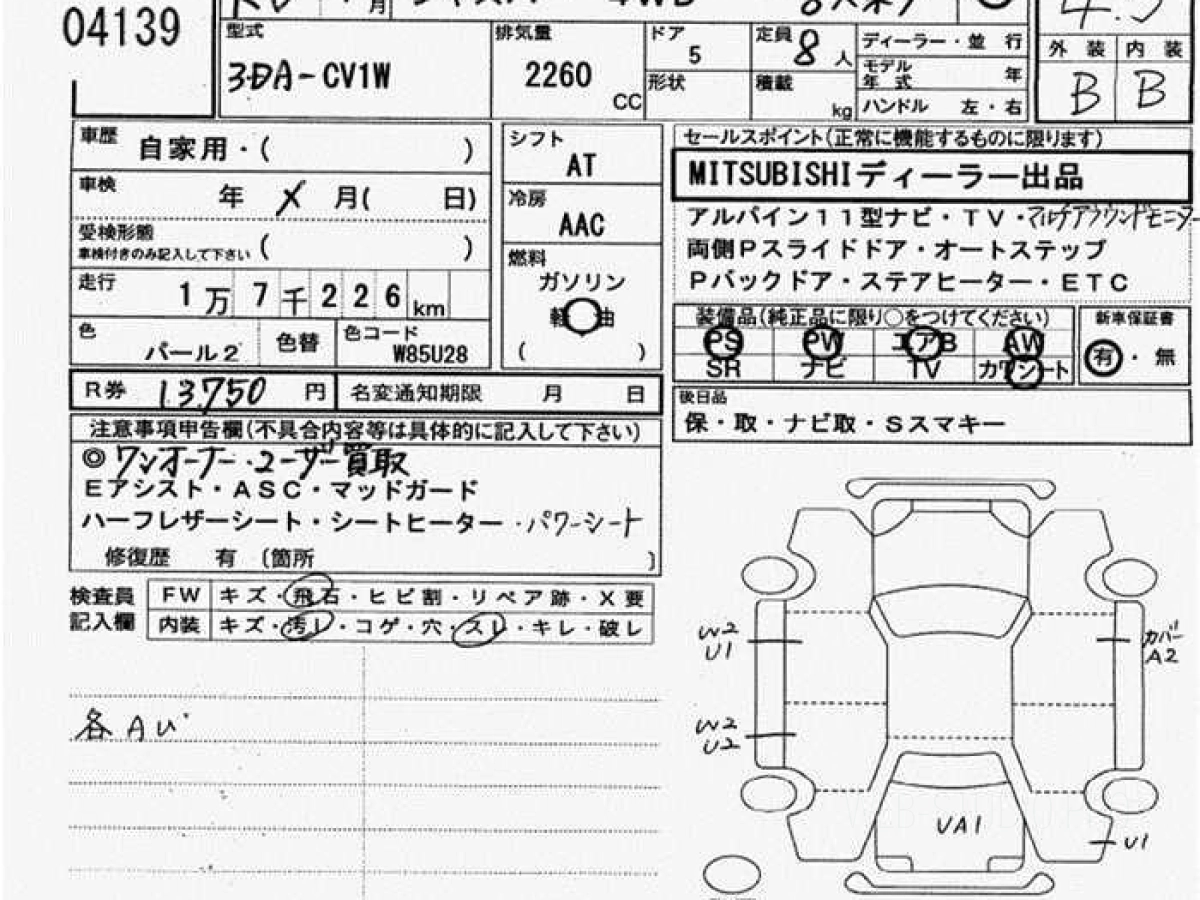 04139
月
型式 3DA-CV1W
排気量 2260 CC
ドア 5
形状
定員 8 人
積載 kg
ディーラー・並 行
モデル年式 年
ハンドル 左・右
4.5
外 装 内 装
B B
車歴 自家用・( )
車検 年 月( 日)
受検形態
車検付きのみ記入して下さい ( )
走行 1万7千226km
色 パール2 色替 色コード W85U28
シフト AT
冷房 AAC
燃料
ガソリン
軽 油
( )
セールスポイント(正常に機能するものに限ります)
MITSUBISHIディーラー出品
アルパイン11型ナビ・TV・マルチアラウンドモニター
両側Pスライドドア・オートステップ
Pバックドア・ステアヒーター・ETC
装備品(純正品に限り○をつけてください)
PS PW エアB AW
SR ナビ TV カワシート
新車保証書
有・無
R券 13,750 円 名変通知期限 月 日
後日品
保・取・ナビ取・Sスマキー
注意事項申告欄(不具合内容等は具体的に記入して下さい)
◎ワンオーナー・ユーザー買取
Eアシスト・ASC・マッドガード
ハーフレザーシート・シートヒーター・パワーシート
修復歴 有 〔箇所 〕
検査員記入欄
FW キズ・飛石・ヒビ割・リペア跡・X要
内装 キズ・汚レ・コゲ・穴・スレ・キレ・破レ
各AU
W2
U1
カバー
A2
W2
U2
UA1
U1